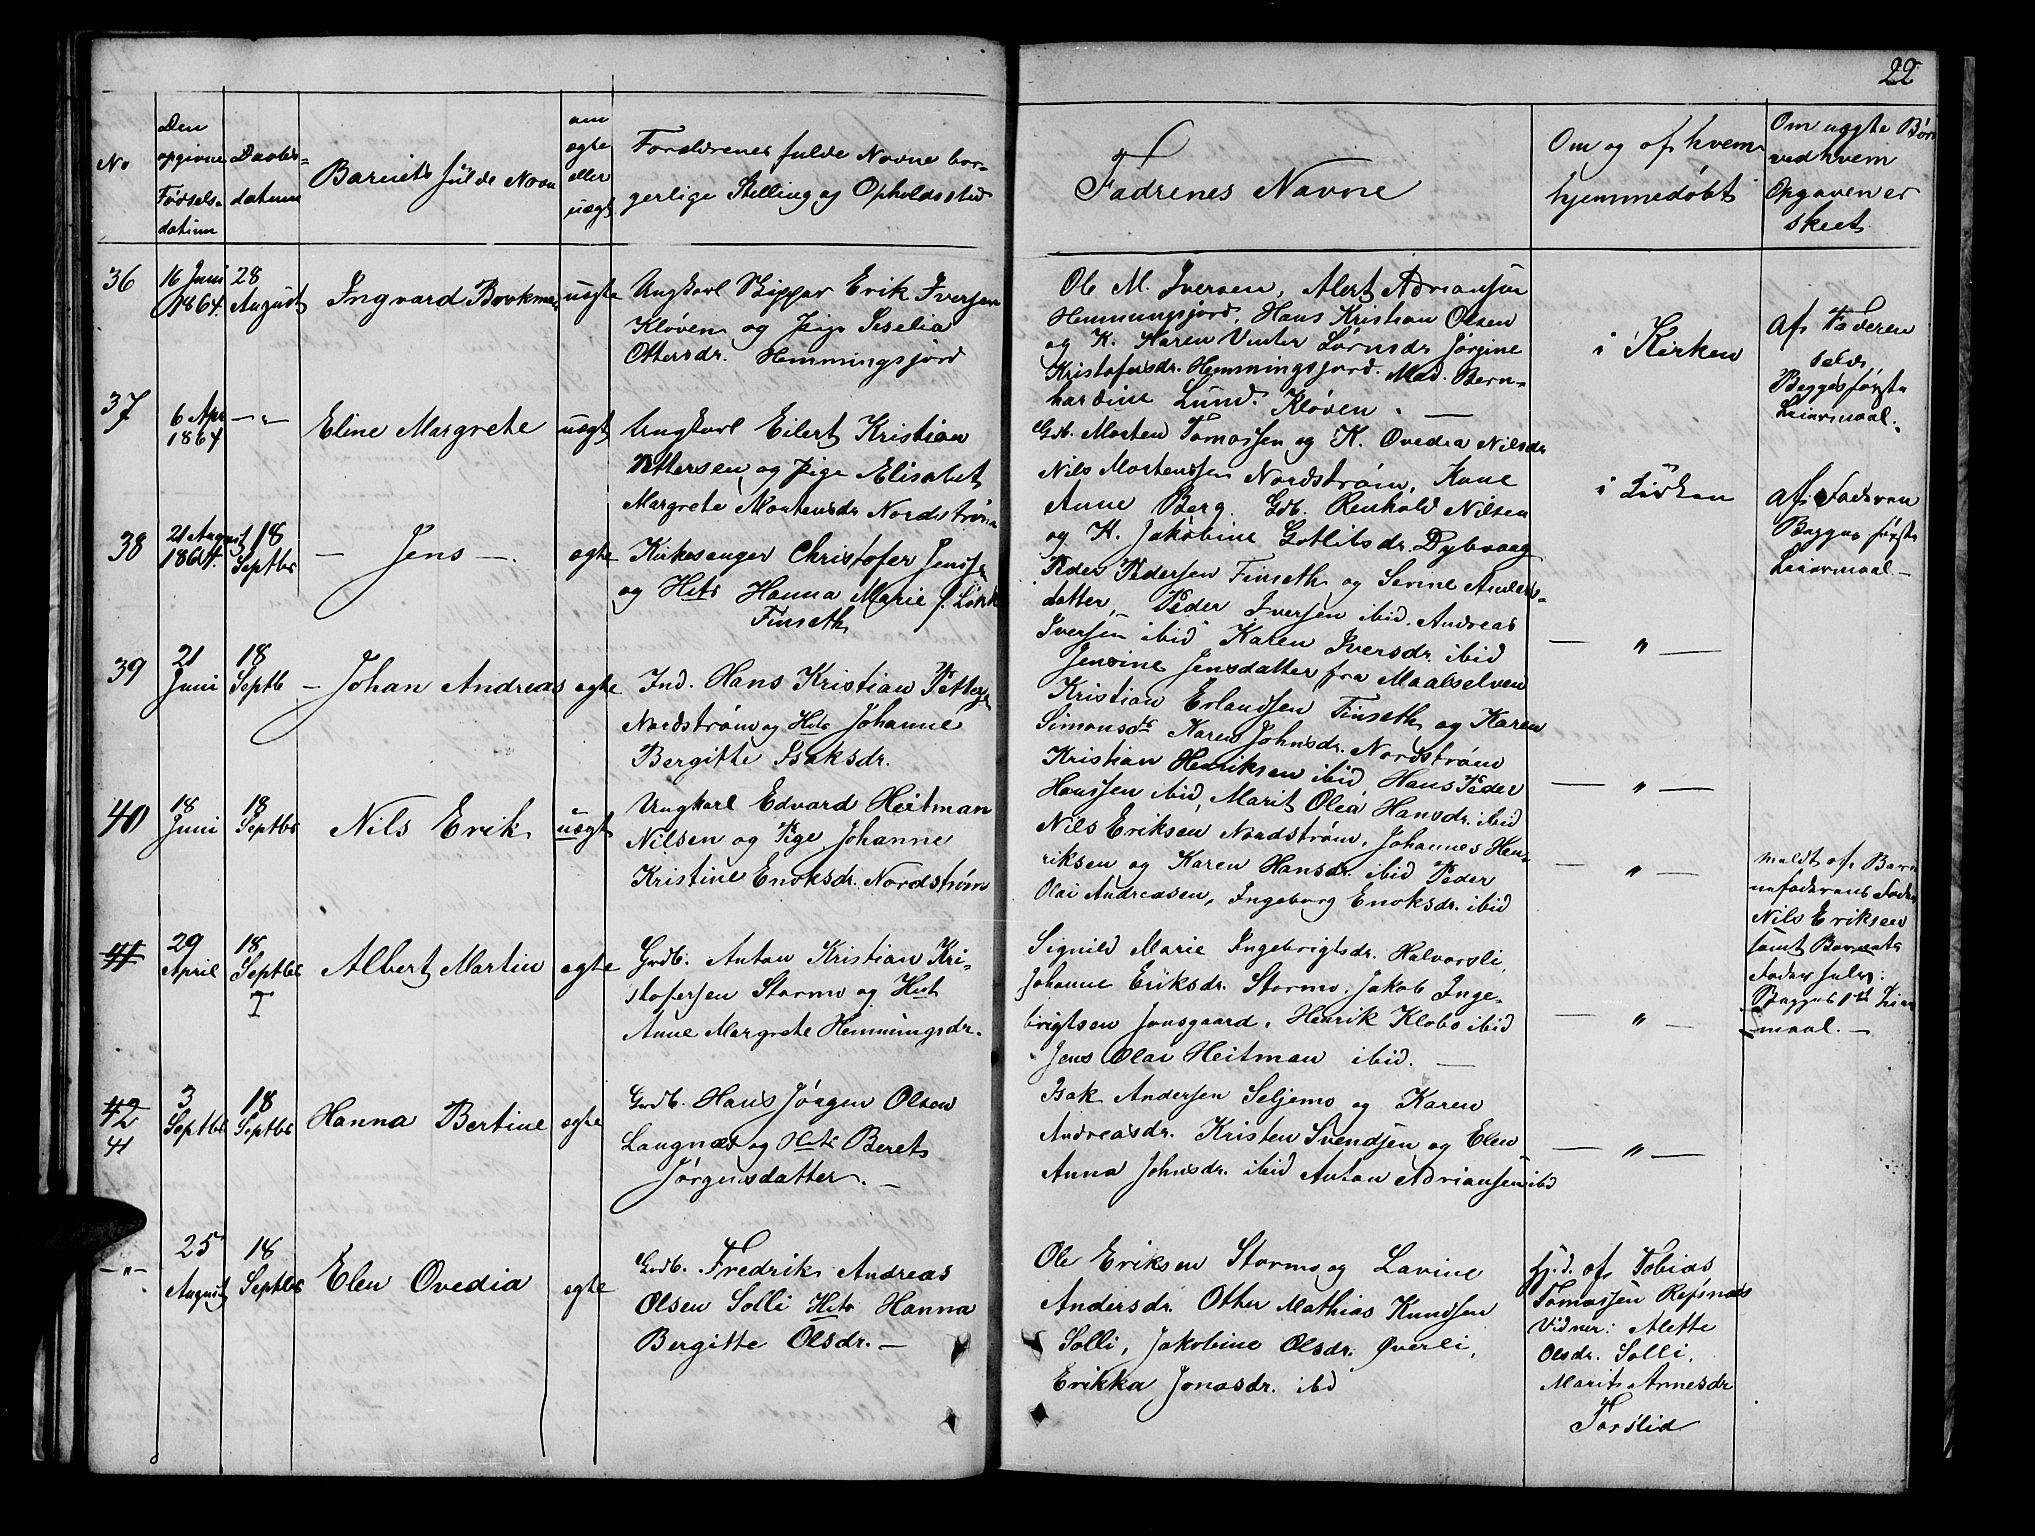 22
No
Den
opgivne
Fødsels-
datum
Daabs-
datum
Barnets fulde Navn
om
ægte
eller
uægt
Forældrenes fulde Navne bor-
gerlige Stilling og Opholdssted
Fadrenes Navne
Om og af hvem
hjemmedøbt
Om uægte Børn
ved hvem
Opgaven er
skeet
36
16 Juni
1864.
28
August
Ingvard
uægte
Ungkarl Skipper Erik Iversen
Kløven og Pige Seselia
Ottersdr. Hemmingsjord
Ole M. Iversen, Alert Adriansen
Hemmingsjord, Hans Kristian Olsen
og K. Karen Vinter Lornsdr Jørgine
Kristofersdr. Hemmingsjord. Mad. Bern-
hardine Lund. Kløven. —
i Kirken
Af Faderen
selv.
Begges første
Leiermaal.
37
6 Apr
1864
— " —
Eline Margrete
uægt
Ungkarl Eilert Kristian
Pettersen og Pige Elisabet
Margrete Mortensdr Nordstrøm
Gdb. Morten Tomassen og K. Ovedia Nilsdr
Nils Mortenssen Nordstrøm, Kone
Anne Berg. Gdb. Renhold Nilsen
og K. Jakobine Gotlibsdr. Dybvaag
i Kirken
Af Faderen
Begges første
Leiermaal —
38
21 August
1864.
18
Septbr
— Jens —.
ægte
Kirkesanger Christofer Jenssen
og Hst Hanna Marie f.
Finseth
Peder Pedersen Finseth og Serine Anders-
datter, — Peder Iversen ibid. Andreas
Iversen ibid Karen Iversdr. ibid
Jensine Jensdatter fra Maalselven
— " —
39
21
Juni
18
Septb
— Johan Andreas
ægte
Ind. Hans Kristian Petters
Nordstrøm og Hst Johanne
Bergitte Isaksdr.
Kristian Erlandsen Finseth og Karen
Simonsdr Karen Johnsdr. Nordstrøm
Kristian Henriksen ibid, Hans Peder
Hanssen ibid, Marit Olea Hansdr. ibid
— " —
40
18
Juni
18
Septbr
Nils Erik
uægt
Ungkarl Edvard Heitman
Nilsen og Pige Johanne
Kristine Enoksdr. Nordstrøm
Nils Eriksen Nordstrøm, Johannes Hen-
riksen og Karen Hansdr. ibid Peder
Olai Andreasen, Ingeborg Enoksdr. ibid
— " —
meldt af Barne-
nefaderens Fader
Nils Eriksen
samt Barnets
Fader selv:
Begges 1st Leier-
maal. —
41
29
April
18
Septbr
I
Albert Martin
ægte
Grdb. Anton Kristian Kri-
stofersen Stormo og Hst
Anne Margrete Hemmingsdr.
Signild Marie Ingebrigtsdr. Halvorsli,
Johanne Eriksdr. Stormo, Jakob Inge-
brigtsen Jonsgaard. Henrik Klobs ibid
Jens Olai Heitman ibid. —
— " —
42
41
3
Septbr
18
Septbr
Hanna Bertine
ægte
Grdb. Hans Jørgen Olsen
Langnæs og Hst Beret
Jørgensdatter. —
Isak Andersen Seljemo og Karen
Andreasdr. Kristen Svendsen og Elen
Anna Johnsdr. ibid Anton Adriansen ibid
— " —
— " —
25
August
18
Septbr
Elen Ovedia
ægte
Grdb. Fredrik Andreas
Olsen Solli Hst Hanna
Bergitte Olsdr. —
Ole Eriksen Stormo og Lavine
Andersdr. Otter Mathias Knudsen
Solli, Jakobine Olsdr. Øverli,
Erikka Jonasdr. ibd
Hj.d. af Tobias
Tomassen Refsnæs
Vidner: Alette
Olsdr. Solli.
Marit Arnesdr
Forslid